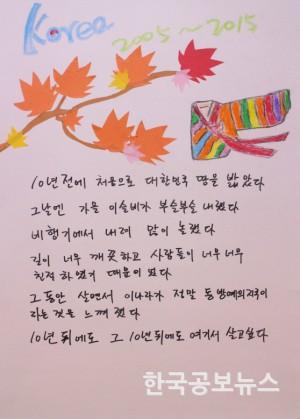 Korea
2005~2015
10년전에 처음으로 대한민국 땅을 밟았다
그날엔 가을 이슬비가 부슬부슬 내렸다
비행기에서 내려 많이 놀랬다
길이 너무 깨끗하고 사람들이 너무너무
친절하였기 때문이었다
그동안 살면서 이나라가 정말 동방예의지국이
라는것을 느껴왔다
10년 뒤에도 그 10년뒤에도 여기서 살고싶다
한국공보뉴스